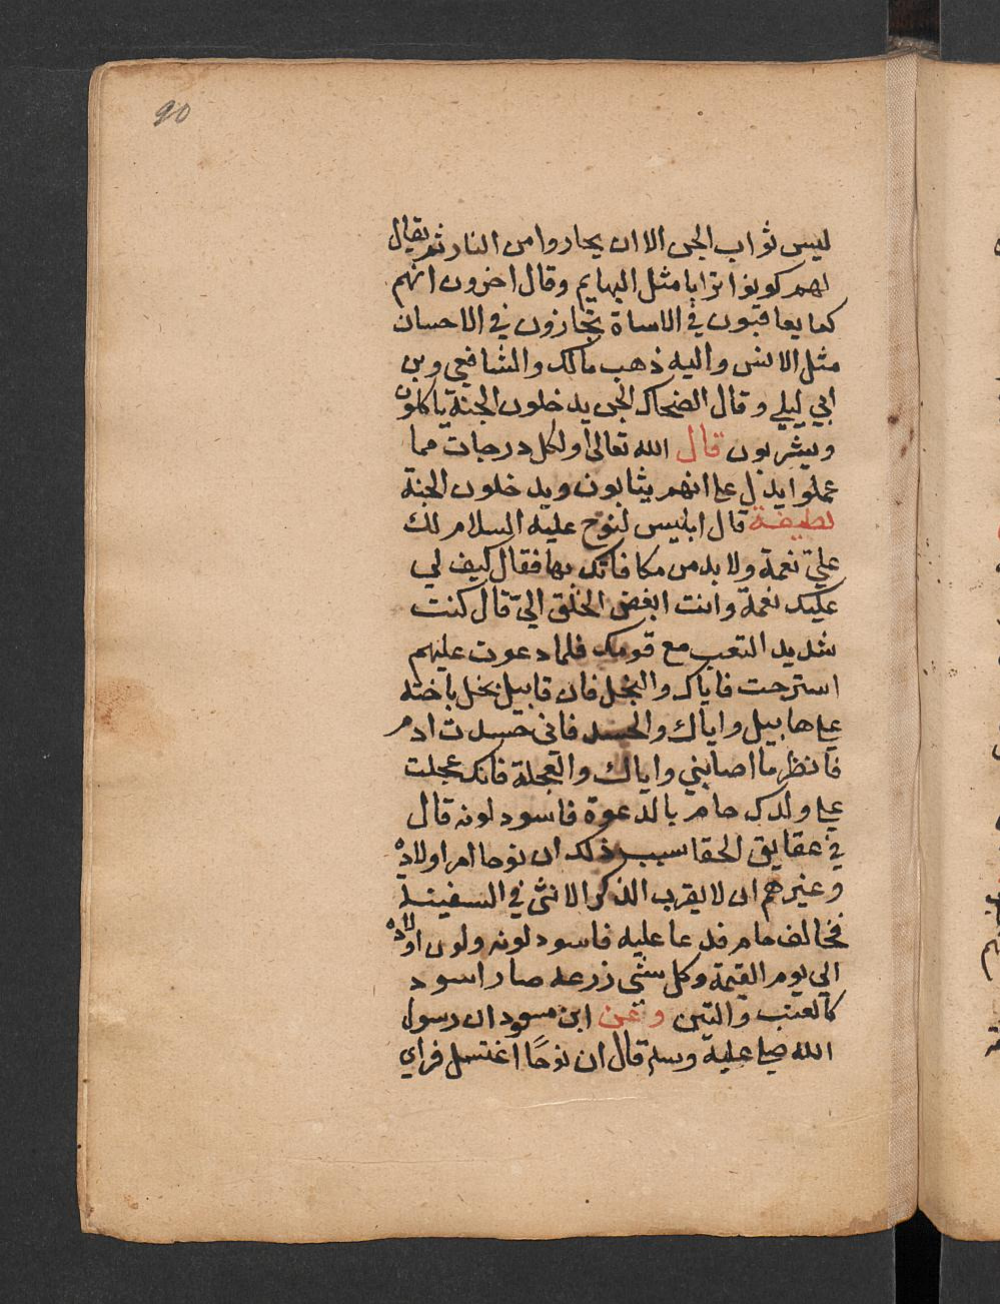 90
ليس ثواب الجن الا ان يجاروا من النار ثم يقال
لهم كونوا ترابا مثل البهايم وقال اخرون انهم
كما يعاقبون في الاساة يجازون في الاحسان
مثل الانس واليه ذهب مالك والشافعي وبن
ابي ليلي وقال الضحاك الجن يدخلون الجنة ياكلون
ويشربون قال الله تعالى ولكل درجات مما
عملوا يدل علي انهم يثابون ويدخلون الجنة
لطيفة قال ابليس لنوح عليه السلام لك
علي نعمة ولا بد من مكافاتك بها فقال كيف لي
عليك نعمة وانت ابغض الخلق الي قال كنت
شديد التعب مع قومك فلما دعوت عليهم
استرحت فاياك والبخل فان قابيل بخل باخته
علي هابيل واياك والحسد فاني حسدت ادم
فانظر ما اصابني واياك والعجلة فانك عجلت
علي ولدك حام بالدعوة فاسود لونه قال
في عقايق الحقا سبب ذلك ان نوحا امر اولاده
وغيرهم ان لا يقرب الذكر الانثى في السفينة
فخالف حام فدعا عليه فاسود لونه ولون اولاده
الي يوم القيمة وكل شئ زرعه صار اسود
كالعنب والتين وعن ابن مسعود ان رسول
الله صلي عليه وسلم قال ان نوحًا اغتسل فراي